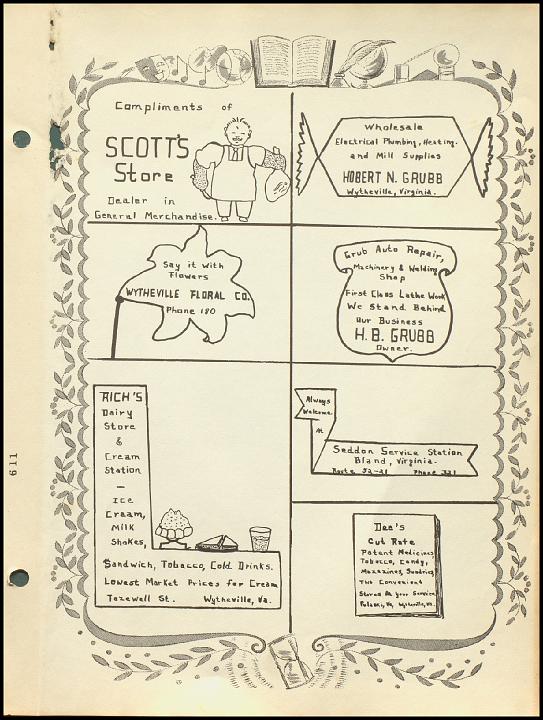 Compliments of
SCOTT'S
Store
Dealer in
General Merchandise.
Wholesale
Electrical Plumbing, Heating.
and Mill Supplies
HOBERT N. GRUBB
Wytheville, Virginia.
Say it with
Flowers
WYTHEVILLE FLORAL CO.
Phone 180
Grub Auto Repair,
Machinery & Welding
Shop
First Class Lathe Work
We Stand Behind
Our Business
H. B. GRUBB
Owner.
RICH'S
Dairy
Store
&
Cream
Station
—
Ice
Cream,
Milk
Shakes,
Sandwich, Tobacco, Cold Drinks.
Lowest Market Prices for Cream
Tazewell St. Wytheville, Va.
Always
Welcome
At
Seddon Service Station
Bland, Virginia.
Route 52-21 Phone 321
Dee's
Cut Rate
Patent Medicines
Tobacco, Candy,
Magazines, Sundries
Two Convenient
Stores At your Service
Pulaski, Va, Wytheville, Va.
611